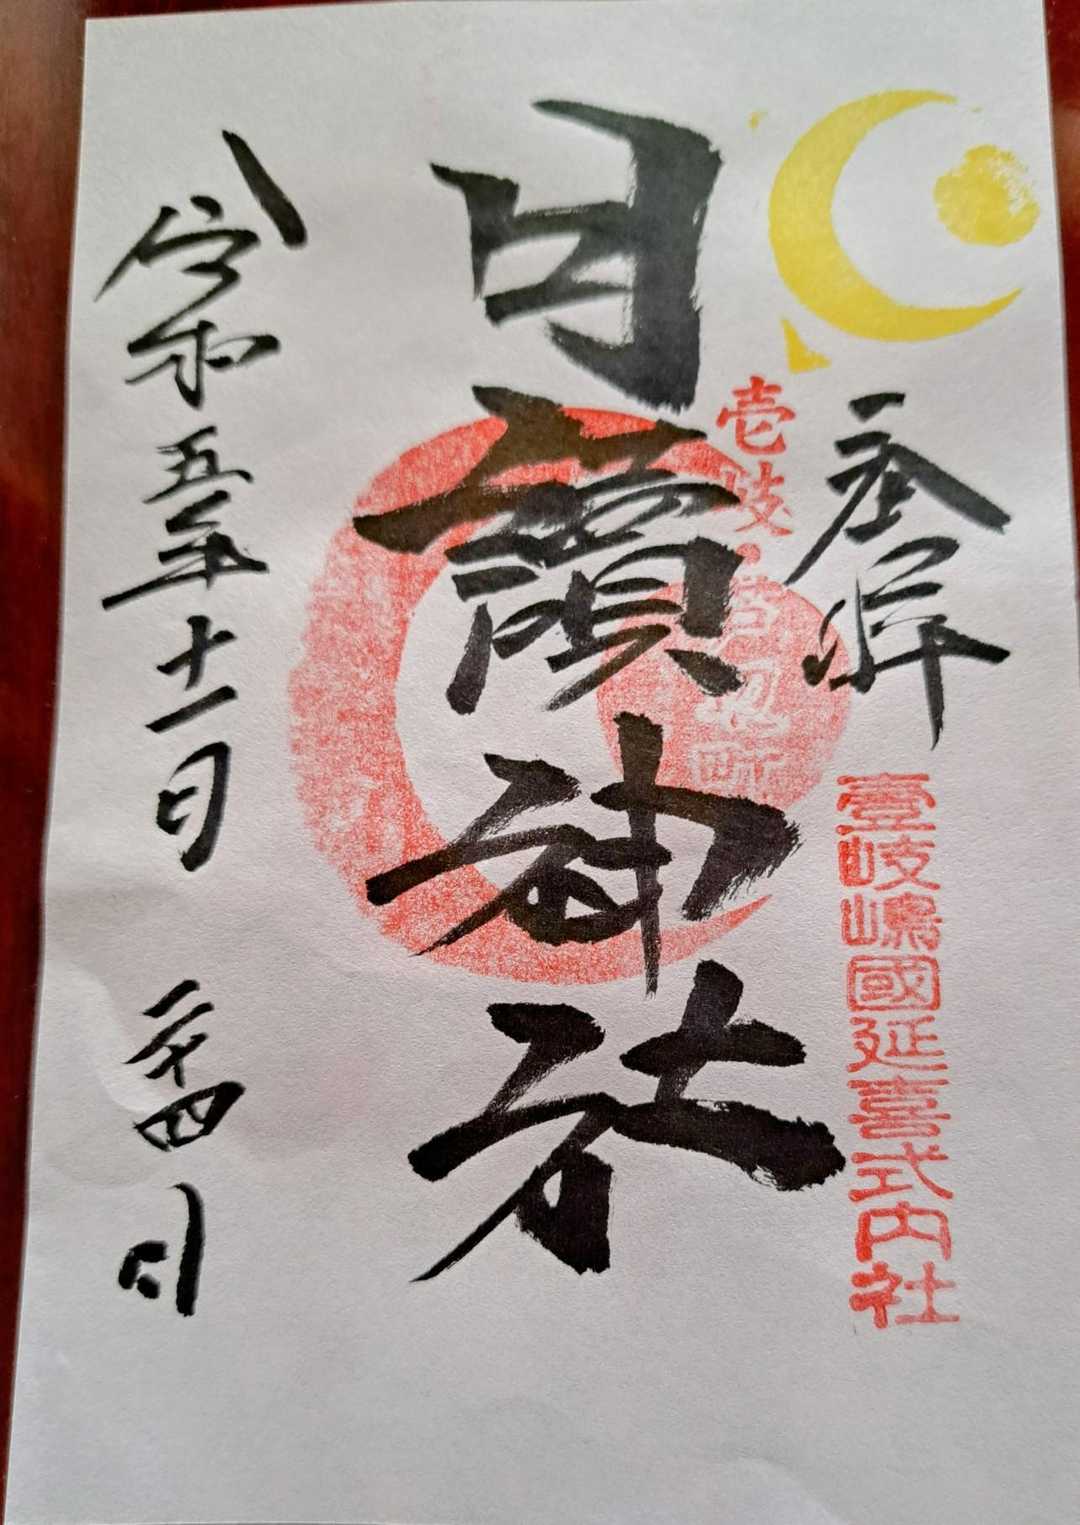 奉拝
壹岐嶋國延喜式内社
壱岐・芦辺町
月讀神社
令和五年十一月二十四日